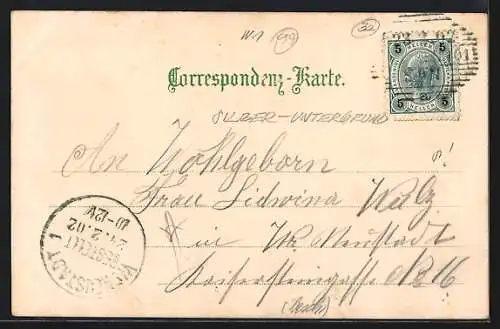 W1 99 32
Correspondenz-Karte.
SILBER-UNTERGRUND
5 HELLER 5
5 HELLER 5
An Wohlgeborn
Frau Lidwina Walz
in Wr. Neustadt
Kaisersteingasse No 16
BESTELLT
24.2.02
10-12V